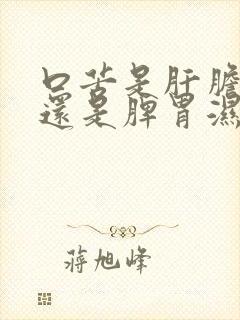 口苦是肝膽
還是脾胃濕
蔣旭峰